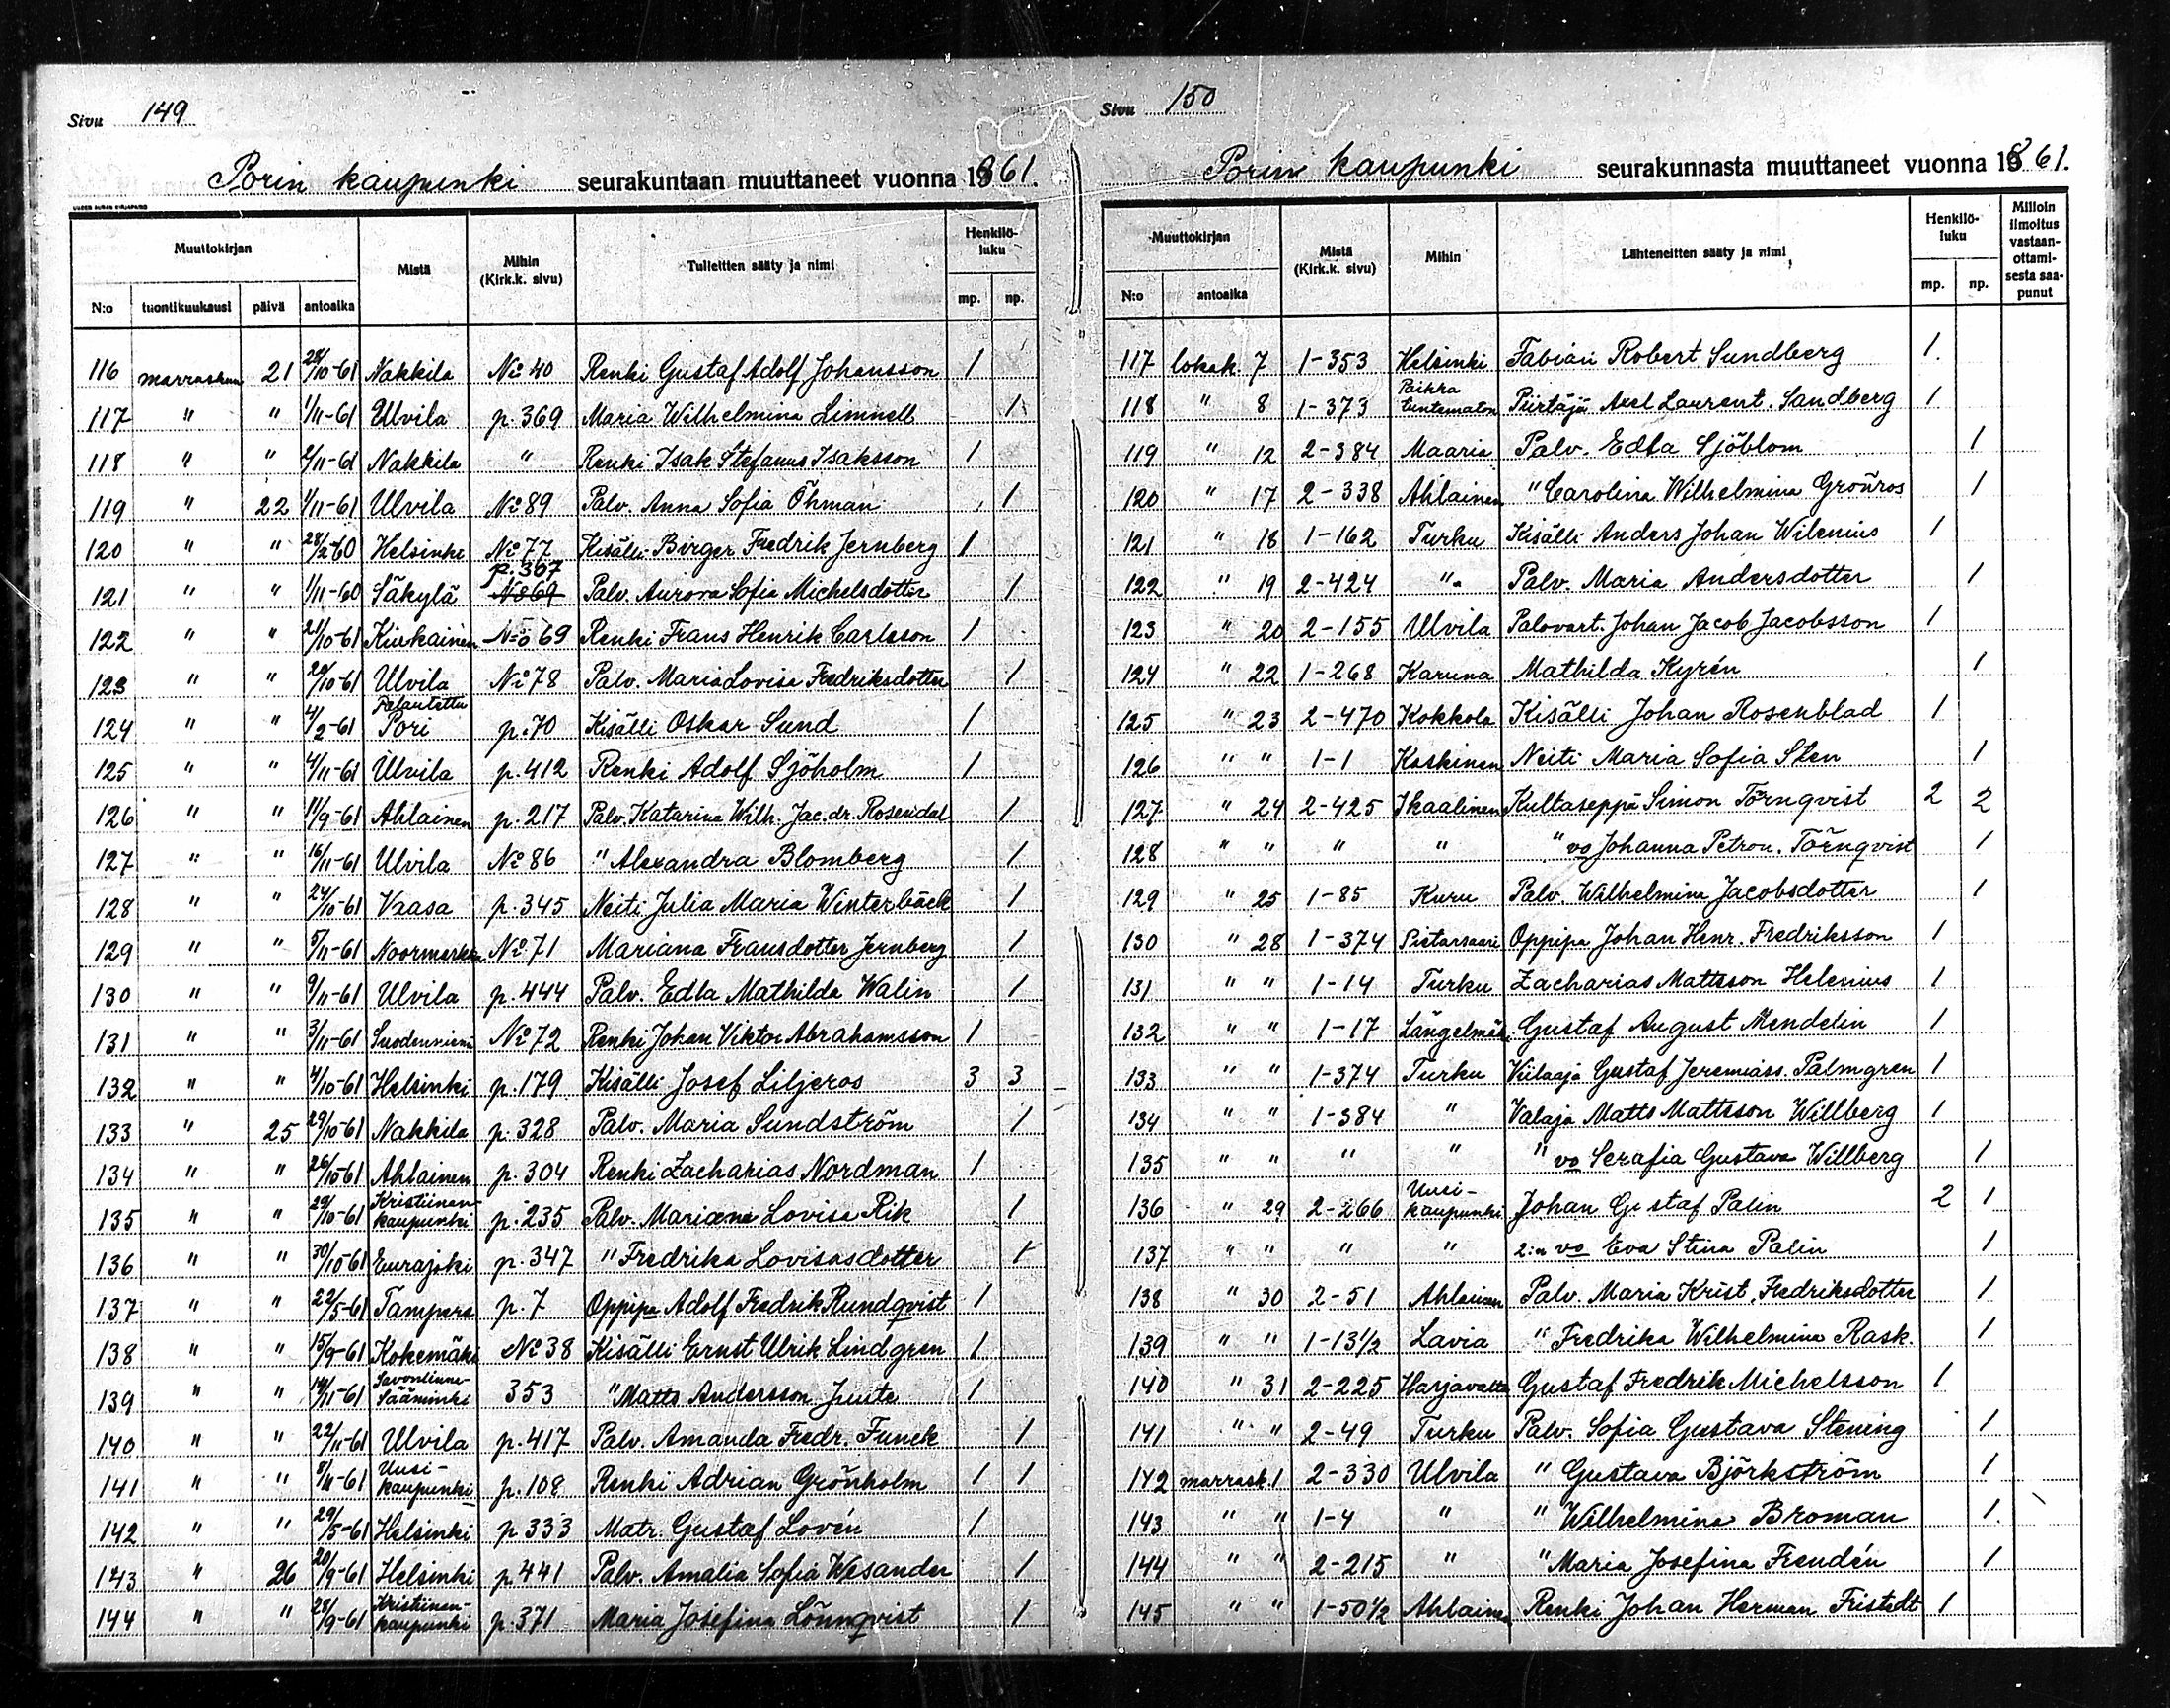 Sivu 149
Porin kaupunki seurakuntaan muuttaneet vuonna 1861.
Muuttokirjan Mistä Mihin (Kirk.k. sivu) Tulleitten sääty ja nimi Henkilö-luku
N:o tuontikuukausi päivä antoaika mp. np.
116 marraskuu 21 28/10-61 Nakkila No 40 Renki Gustaf Adolf Johansson 1
117 " " 1/11-61 Ulvila p. 369 Maria Wilhelmina Limnell 1
118 " " 2/11-61 Nakkila " Renki Isak Stefanus Isaksson 1
119 " 22 1/11-61 Ulvila No 89 Palv. Anna Sofia Öhman 1
120 " " 28/2-60 Helsinki No 77 Kisälli Birger Fredrik Jernberg 1
121 " " 1/11-60 Säkylä p. 367 N869 Palv. Aurora Sofia Michelsdotter 1
122 " " 21/10-61 Kiukainen No 69 Renki Frans Henrik Carlsson 1
123 " " 20/10-61 Ulvila No 78 Palv. Maria Lovisa Fredriksdotter 1
124 " " 4/2-61 Palautettu Pori p. 70 Kisälli Oskar Sund 1
125 " " 4/11-61 Ulvila p. 412 Renki Adolf Sjöholm 1
126 " " 11/9-61 Ahlainen p. 217 Palv. Katarina Wilh. Jac.dr. Rosendal 1
127 " " 16/11-61 Ulvila No 86 " Alexandra Blomberg 1
128 " " 24/10-61 Vaasa p. 345 Neiti Julia Maria Winterbäck 1
129 " " 5/11-61 Noormarkku No 71 Mariana Fransdotter Jernberg 1
130 " " 9/11-61 Ulvila p. 444 Palv. Edla Mathilda Walin 1
131 " " 3/11-61 Suodenniemi No 72 Renki Johan Viktor Abrahamsson 1
132 " " 4/10-61 Helsinki p. 179 Kisälli Josef Liljeros 3 3
133 " 25 29/10-61 Nakkila p. 328 Palv. Maria Sundström 1
134 " " 26/10-61 Ahlainen p. 304 Renki Zacharias Nordman 1
135 " " 29/10-61 Kristiinen-kaupunki p. 235 Palv. Mariana Lovisa Rik 1
136 " " 30/10-61 Eurajoki p. 347 " Fredrika Lovisasdotter 1
137 " " 22/5-61 Tampere p. 7 Oppipa Adolf Fredrik Rundqvist 1
138 " " 15/9-61 Kokemäki No 38 Kisälli Ernst Ulrik Lindgren 1
139 " " 14/11-61 Savonlinna-Sääminki 353 " Matts Andersson Juute 1
140 " " 22/11-61 Ulvila p. 417 Palv. Amanda Fredr. Funck 1
141 " " 8/11-61 Uusi-kaupunki p. 108 Renki Adrian Grönholm 1 1
142 " " 29/5-61 Helsinki p 333 Matr. Gustaf Lovén 1
143 " 26 20/9-61 Helsinki p. 441 Palv. Amalia Sofia Wesander 1
144 " " 28/9-61 Kristiinen-kaupunki p. 371 Maria Josefina Lönnqvist 1
Sivu 150
Porin kaupunki seurakunnasta muuttaneet vuonna 1861.
Muuttokirjan Mistä (Kirk.k. sivu) Mihin Lähteneitten sääty ja nimi Henkilö-luku Milloin ilmoitus vastaan-ottami-sesta saa-punut
N:o antoaika mp. np.
117 lokak. 7 1-353 Helsinki Fabian Robert Sundberg 1.
118 " 8 1-373 Paikka tuntematon Piirtäjä Axel Laurent. Sandberg 1
119 " 12 2-384 Maaria Palv. Edla Sjöblom 1
120 " 17 2-338 Ahlainen " Carolina Wilhelmina Grönros 1
121 " 18 1-162 Turku Kisälli Anders Johan Wilenius 1
122 " 19 2-424 " Palv. Maria Andersdotter 1
123 " 20 2-155 Ulvila Palovart. Johan Jacob Jacobsson 1
124 " 22 1-268 Karuna Mathilda Kyrén 1
125 " 23 2-470 Kokkola Kisälli Johan Rosenblad 1
126 " " 1-1 Koskinen Neiti Maria Sofia Sten 1
127 " 24 2-425 Ikaalinen Kultaseppä Simon Törnqvist 2 2
128 " " " " " vo Johanna Petron. Törnqvist 1
129 " 25 1-85 Kuru Palv. Wilhelmina Jacobsdotter 1
130 " 28 1-374 Pietarsaari Oppipa Johan Henr. Fredriksson 1
131 " " 1-14 Turku Zacharias Mattsson Helenius 1
132 " " 1-17 Längelmäki Gustaf August Mendelin 1
133 " " 1-374 Turku Viilaaja Gustaf Jeremiass. Palmgren 1
134 " " 1-384 " Valaja Matts Mattsson Willberg 1
135 " " " " " vo Serafia Gustava Willberg 1
136 " 29 2-266 Uusi-kaupunki Johan Gustaf Palin 2 1
137 " " " " 2:n vo Eva Stina Palin 1
138 " 30 2-51 Ahlainen Palv. Maria Krist. Fredriksdotter 1
139 " " 1-13 1/2 Lavia " Fredrika Wilhelmina Rask. 1
140 " 31 2-225 Harjavalta Gustaf Fredrik Michelsson 1
141 " " 2-49 Turku Palv. Sofia Gustava Stening 1
142 marrask. 1 2-330 Ulvila " Gustava Björkström 1
143 " " 1-4 " " Wilhelmina Broman 1.
144 " " 2-215 " " Maria Josefina Frendén 1
145 " " 1-50 1/2 Ahlainen Renki Johan Herman Fristedt 1